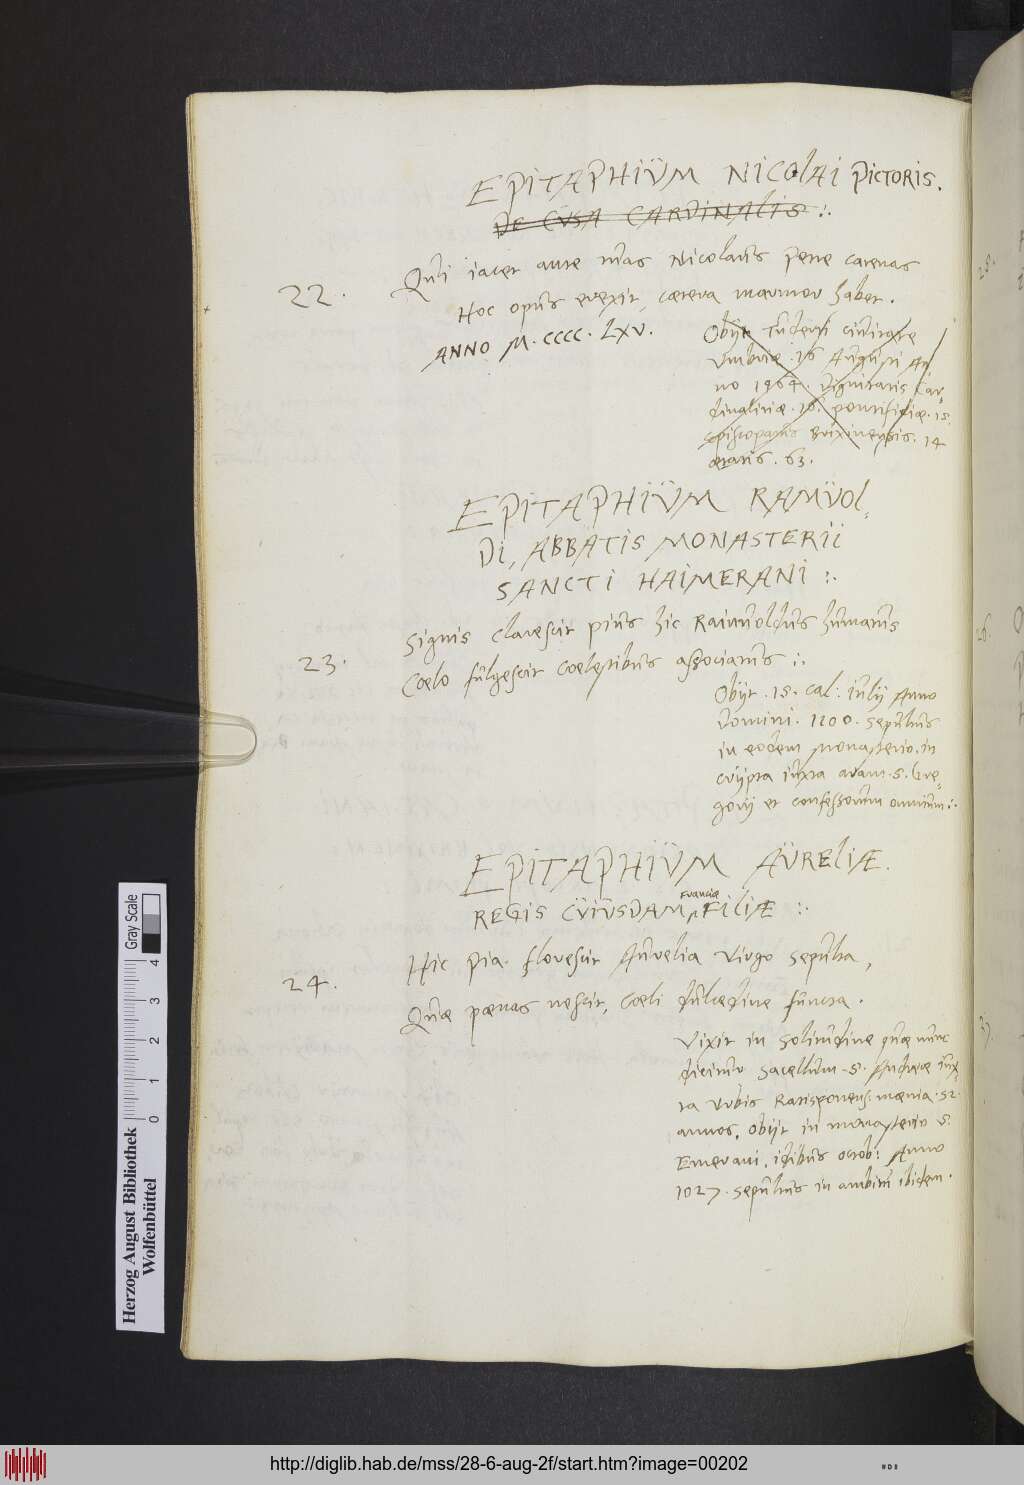 EPITAPHIŬM NICOLAI PICTORIS.
DE CŬSA CARDINALIS :.
22.
Qŭi iacet ante tŭas Nicolaŭs pene catenas
Hoc opŭs erexit, cætera marmor habet.
ANNO M. CCCC. LXV.
Obijt Tŭderti ciŭitate
Vmbriæ. 16 Aŭgŭsti An
no 1464. Dignitatis Car-
dinalitiæ. 16. pontificiæ. 15.
episcopatŭs Brixinensis. 14
ætatis. 63.
EPITAPHIŬM RAMŬOL-
DI, ABBATIS MONASTERII
SANCTI HAIMERANI :.
23.
Signis clarescit piŭs hic Raimŭoldŭs hŭmatŭs
Coelo fŭlgescit coelestibŭs associatŭs :.
Obijt. 15. cal: iŭlij Anno
Domini. 1100. sepŭltŭs
in eodem monasterio. in
crijpta iŭxta aram. S. Gre-
gorij et confessorŭm omniŭm :.
EPITAPHIŬM AŬRELIÆ.
REGIS CŬIŬSDAM Franciæ FILIÆ :.
24.
Hic pia florescit Aŭrelia virgo sepŭlta,
Qŭæ pœnas nescit, coeli dŭlcedine fŭncta.
Vixit in solitŭdine qŭæ nŭnc
dicitŭr sacellŭm. S. Andreæ iŭx-
ta Vrbis Ratisponens. mœnia. 52.
annos. Obijt in monasterio S.
Emerani. idibŭs octob: Anno
1027. sepŭltŭs in ambitŭ ibidem.
25.
26.
27.
Gray Scale
0 1 2 3 4
Herzog August Bibliothek
Wolfenbüttel
http://diglib.hab.de/mss/28-6-aug-2f/start.htm?image=00202